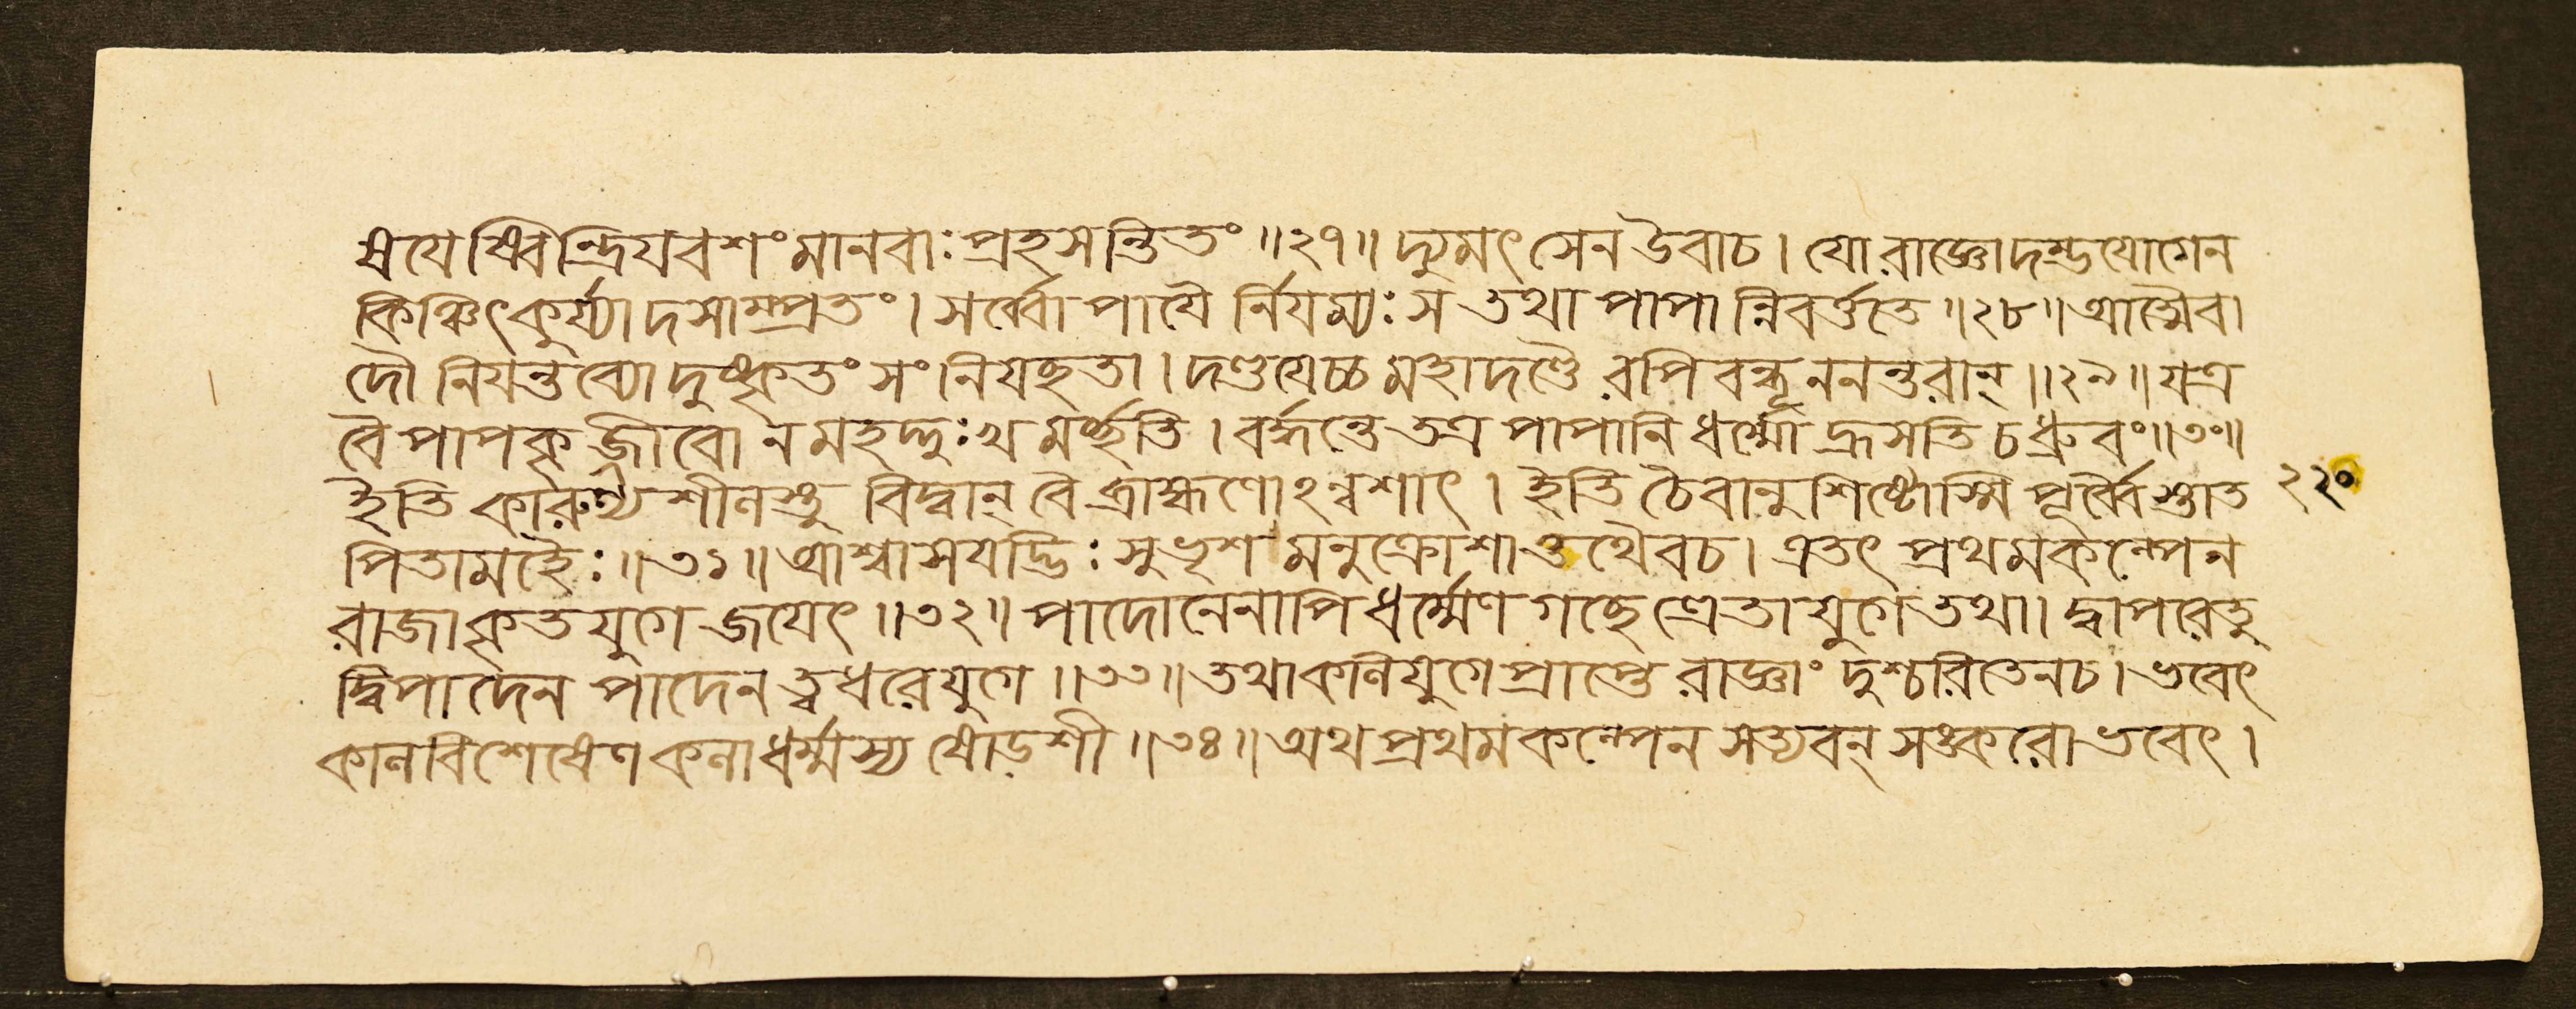 ষয়েষ্বিন্দ্রিযবশং মানবাঃ প্রহসন্তি তং ॥২৭॥ দ্যুমৎসেন উবাচ। যো রাজ্ঞো দম্ভযোগেন
কিঞ্চিৎ কুর্য্যাদসাম্প্রতং। সর্ব্বোপাযৈর্নিযম্যঃ স তথা পাপান্নিবর্ত্ততে ॥২৮॥ আত্মৈবা
দৌ নিযন্তব্যো দুষ্কৃতং সংনিযচ্ছতা। দণ্ডযেচ্চ মহাদণ্ডৈরপি বন্ধূননন্তরান্ ॥২৯॥ যত্র
বৈ পাপকৃজ্জীবো ন মহদ্দুঃখমর্চ্ছতি। বর্দ্ধন্তে তত্র পাপানি ধর্ম্মো হ্রসতি চ ধ্রুবং ॥৩০॥
ইতি কারুণ্যশীলস্তু বিদ্বান্ বৈ ব্রাহ্মণোঽন্বশাৎ। ইতি চৈবানুশিষ্টোস্মি পূর্ব্বৈস্তাত ২২০
পিতামহৈঃ ॥৩১॥ আশ্বাসযদ্ভিঃ সুভৃশমনুক্রোশাত্তথৈবচ। এতৎ প্রথমকল্পেন
রাজা কৃতযুগে জযেৎ ॥৩২॥ পাদোনেনাপি ধর্ম্মেণ গচ্ছে ত্রেতাযুগে তথা। দ্বাপরে তু
দ্বিপাদেন পাদেন ত্বধরে যুগে ॥৩৩॥ তথা কলিযুগে প্রাপ্তে রাজ্ঞাং দুশ্চরিতেন চ। ভবেৎ
কালবিশেষেণ কলা ধর্ম্মস্য ষোড়শী ॥৩৪॥ অথ প্রথমকল্পেন সত্যবন্ সঙ্করো ভবেৎ।